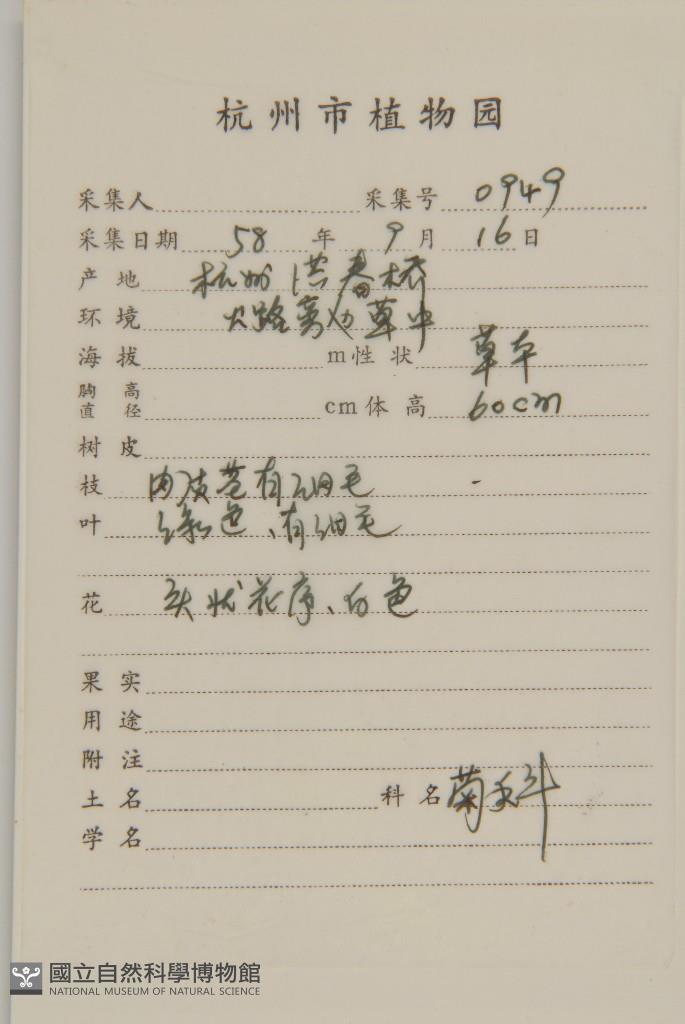 杭州市植物园
采集人 采集号 0949
采集日期 58 年 9 月 16 日
产地 杭州 洪春桥
环境 公路旁 草中
海拔 m 性状 草本
胸高直径 cm 体高 60cm
树皮
枝 有细毛
叶 绿色、有细毛
花 头状花序、白色
果实
用途
附注
土名 科名 菊科
学名
國立自然科學博物館
NATIONAL MUSEUM OF NATURAL SCIENCE